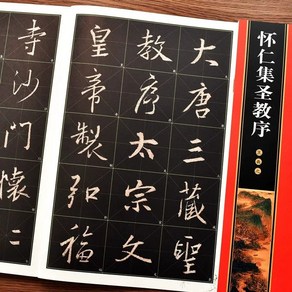 大唐三藏聖
教序太宗文
皇帝製弘福
寺沙門懷仁
怀仁集圣教序